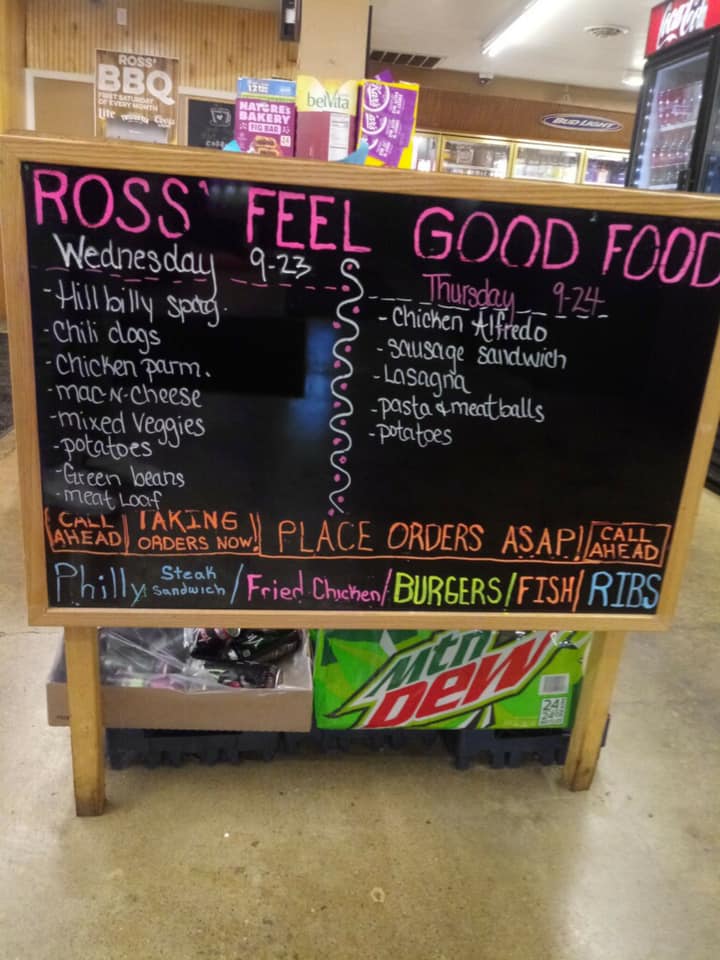 ROSS'
BBQ
FIRST SATURDAY
OF EVERY MONTH
Lite
NATURE'S
BAKERY
FIG BAR
belVita
BUD LIGHT
ROSS' FEEL GOOD FOOD
Wednesday 9-23
- Hillbilly spag.
- Chili dogs
- Chicken parm.
- mac N. Cheese
- mixed Veggies
- potatoes
- Green beans
- meat Loaf
Thursday 9-24
- Chicken Alfredo
- sausage sandwich
- Lasagna
- pasta & meatballs
- potatoes
CALL AHEAD
TAKING ORDERS NOW!
PLACE ORDERS ASAP!
CALL AHEAD
Philly Steak Sandwich / Fried Chicken / BURGERS / FISH / RIBS
Mtn
DEW
24